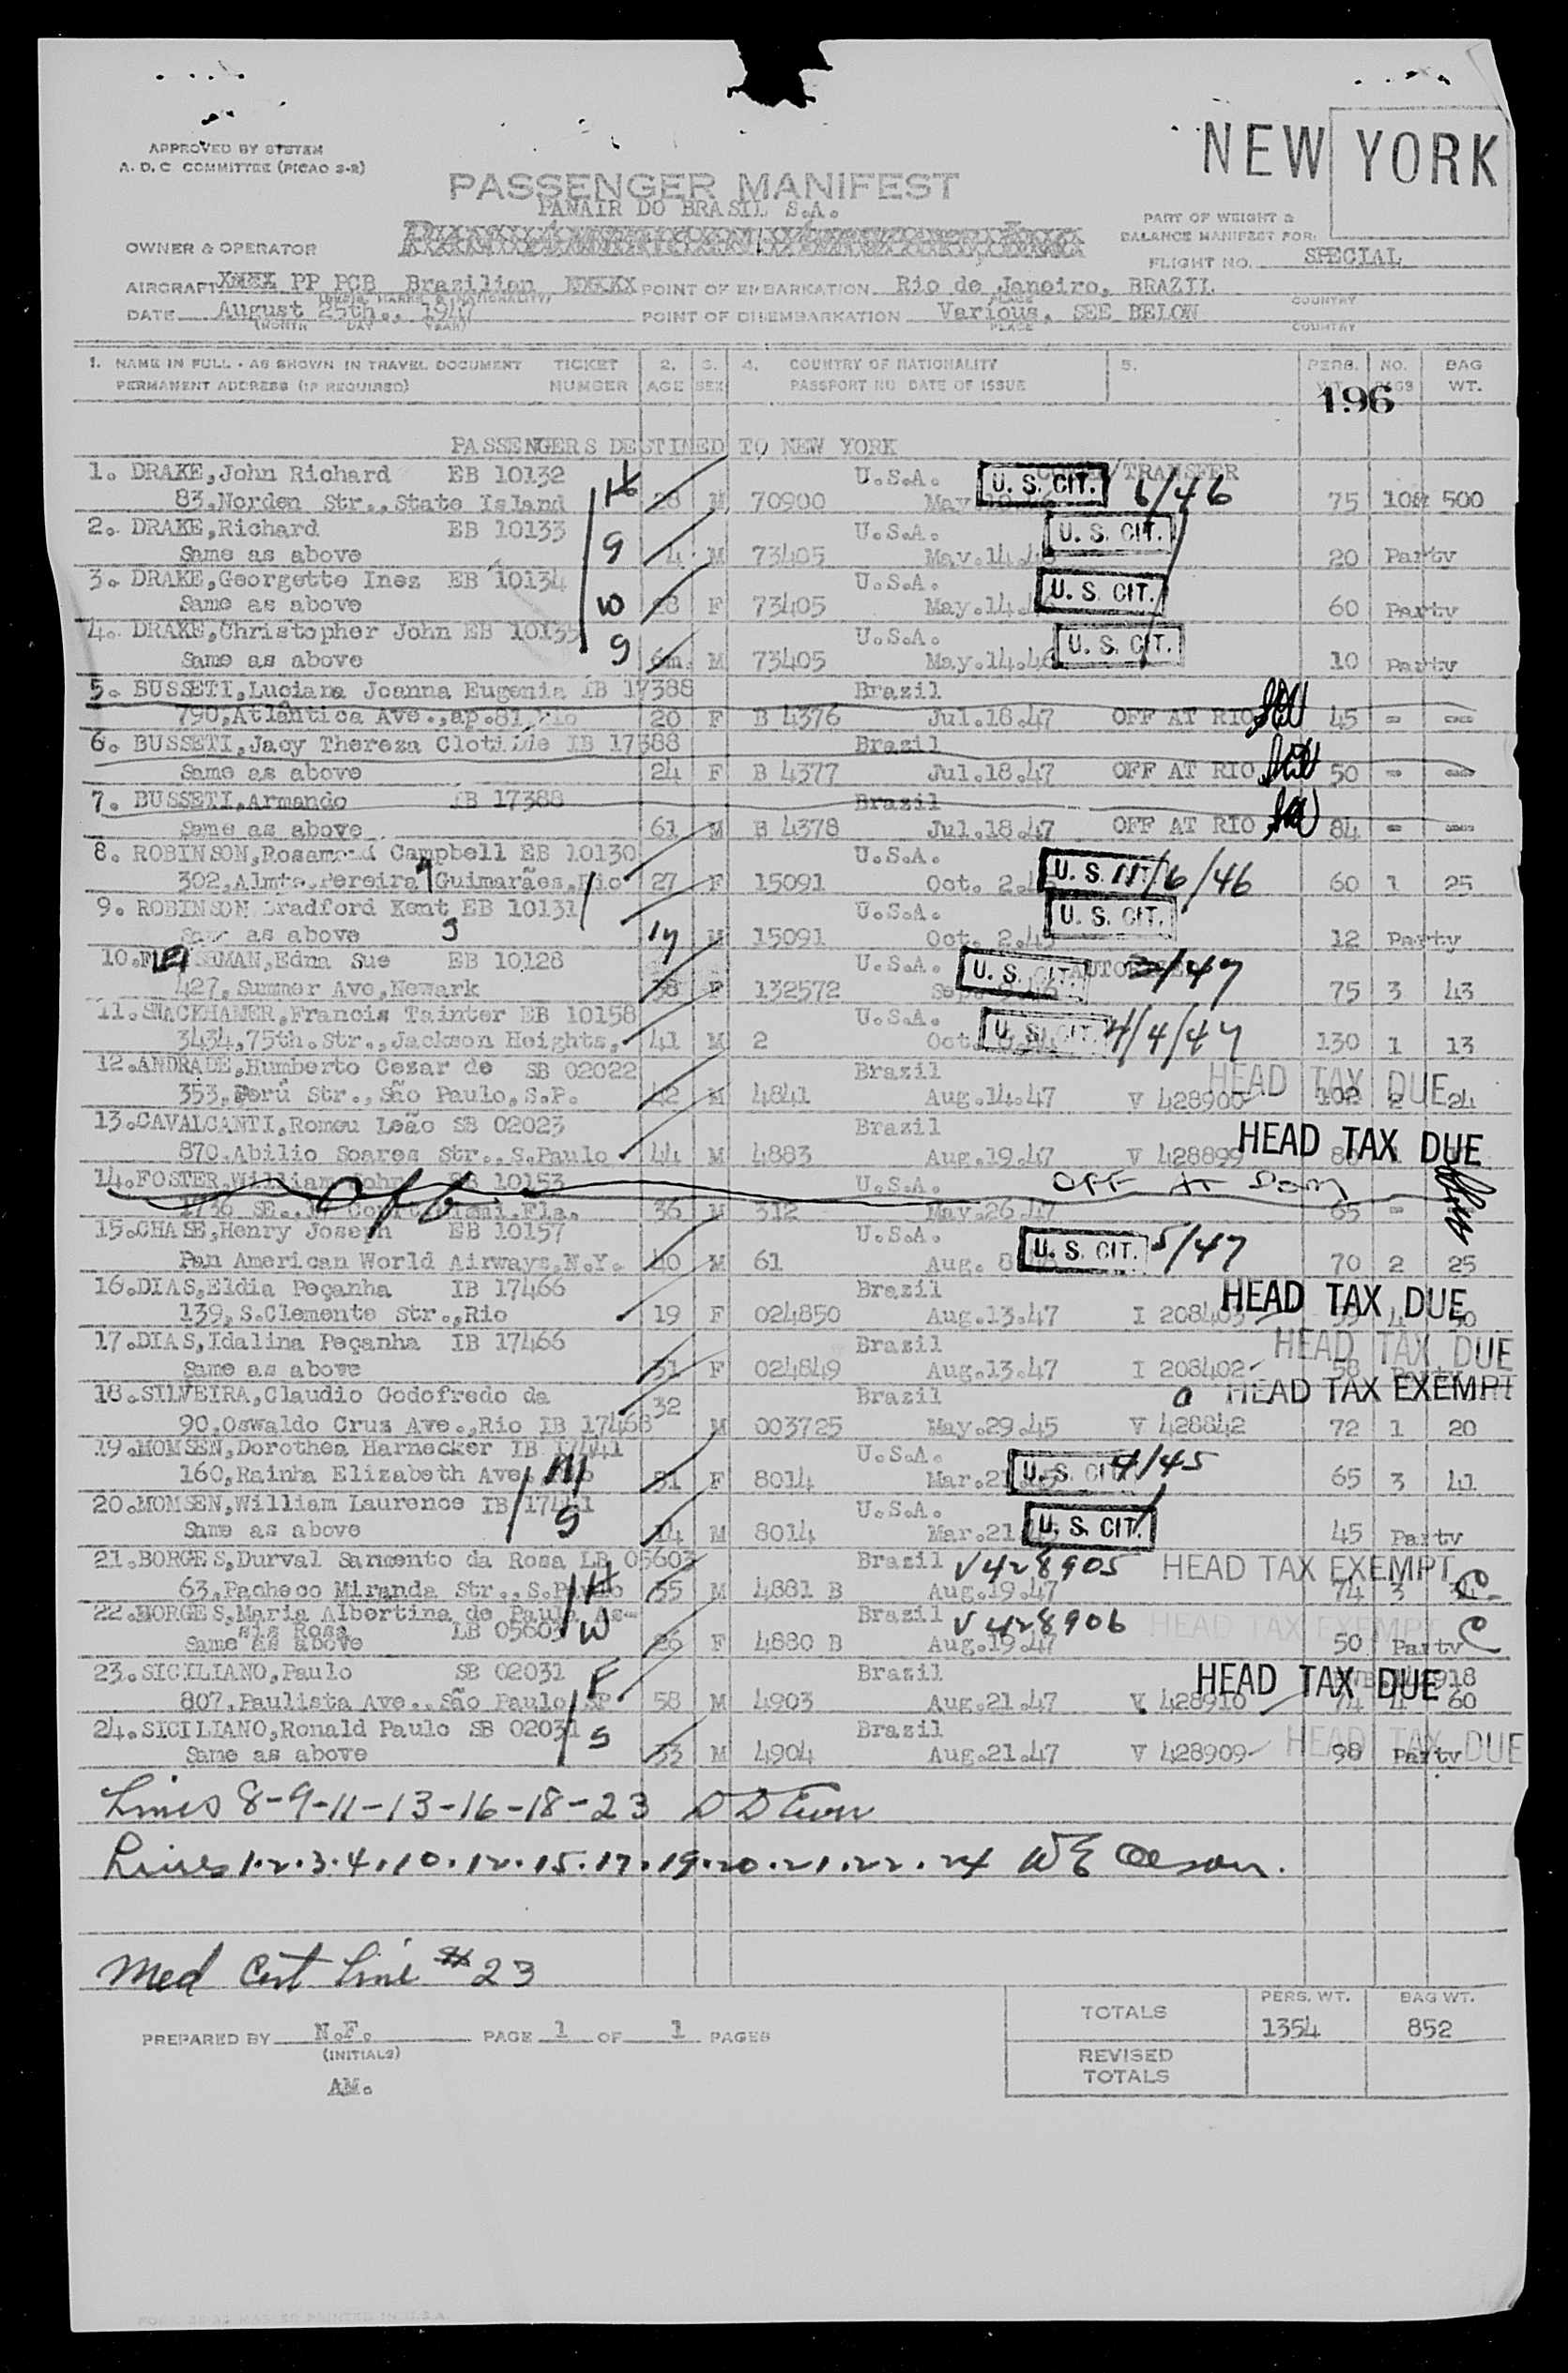 NEW YORK
APPROVED BY SYSTEM
A. D. C COMMITTEE (PICAO S-2)
PASSENGER MANIFEST
PANAIR DO BRASIL S.A.
PART OF WEIGHT &
BALANCE MANIFEST FOR:
OWNER & OPERATOR
FLIGHT NO. SPECIAL
AIRCRAFT PP PCB Brazilian POINT OF EMBARKATION Rio de Janeiro, BRAZIL
PLACE COUNTRY
DATE August 25th., 1947 POINT OF DISEMBARKATION Various, SEE BELOW
(MONTH DAY YEAR) PLACE COUNTRY
1. NAME IN FULL - AS SHOWN IN TRAVEL DOCUMENT TICKET 2. 3. 4. COUNTRY OF NATIONALITY 5. PERS. NO. BAG
PERMANENT ADDRESS (IF REQUIRED) NUMBER AGE SEX PASSPORT NO DATE OF ISSUE WT.
196
PASSENGERS DESTINED TO NEW YORK
1. DRAKE,John Richard EB 10132 U.S.A. /TRANSFER
83,Norden Str.,State Island H 28 M 70900 May U. S. CIT. 6/46 75 10 500
2. DRAKE,Richard EB 10133 U.S.A. U. S. CIT.
Same as above S 4 M 73405 May.14. 20 Party
3. DRAKE,Georgette Inez EB 10134 U.S.A. U. S. CIT.
Same as above W 28 F 73405 May.14. 60 Party
4. DRAKE,Christopher John EB 10135 U.S.A. U. S. CIT.
Same as above S 6m. M 73405 May.14.46 10 Party
5. BUSSETI,Luciana Joanna Eugenia IB 17388 Brazil
790,Atlântica Ave.,ap.81,Rio 20 F B 4376 Jul.18.47 OFF AT RIO 45 - -
6. BUSSETI,Jacy Thereza Clotilde IB 17388 Brazil
Same as above 24 F B 4377 Jul.18.47 OFF AT RIO 50 - -
7. BUSSETI,Armando IB 17388 Brazil
Same as above 61 M B 4378 Jul.18.47 OFF AT RIO 84 - -
8. ROBINSON,Rosamond Campbell EB 10130 U.S.A.
302,Almte.Pereira Guimarães,Rio 27 F 15091 Oct. 2. U. S. 11/6/46 60 1 25
9. ROBINSON Bradford Kent EB 10131 U.S.A. U. S. CIT.
Same as above S M 15091 Oct. 2.45 12 Party
10. Edna Sue EB 10128 U.S.A. U. S. CIT.
427, Summer Ave,Newark 38 F 132572 75 3 43
11.SHACKHAMER,Francis Tainter EB 10158 U.S.A. U. S. CIT.
3434,75th.Str.,Jackson Heights, 41 M 2 Oct. 4/4/47 130 1 13
12.ANDRADE,Humberto Cezar de SB 02022 Brazil HEAD TAX DUE
353,Perú Str.,São Paulo,S.P. 42 M 4841 Aug.14.47 V 428900 102 2 24
13.CAVALCANTI,Romeu Leão SB 02023 Brazil HEAD TAX DUE
870,Abilio Soares Str.,S.Paulo 44 M 4883 Aug.19.47 V 428899
14.FOSTER,William John EB 10153 U.S.A. OFF AT
36 M 312 May.26.47 65 -
15.CHASE,Henry Joseph EB 10157 U.S.A. U. S. CIT. 5/47
Pan American World Airways,N.Y. 40 M 61 Aug. 8 70 2 25
16.DIAS,Eldia Peçanha IB 17466 Brazil HEAD TAX DUE
139,S.Clemente Str.,Rio 19 F 024850 Aug.13.47 I 208403
17.DIAS,Idalina Peçanha IB 17466 Brazil HEAD TAX DUE
Same as above 31 F 024849 Aug.13.47 I 208402 58
18.SILVEIRA,Claudio Godofredo da 32 Brazil HEAD TAX EXEMPT
90,Oswaldo Cruz Ave.,Rio IB 17468 M 003725 May.29.45 V 428842 72 1 20
19.MOMSEN,Dorothea Harnecker IB 17441 U.S.A. U. S. CIT. 4/45
160,Rainha Elizabeth Ave., M 51 F 8014 Mar.21 65 3 41
20.MOMSEN,William Laurence IB 17441 U.S.A. U. S. CIT.
Same as above S 14 M 8014 Mar.21 45 Party
21.BORGES,Durval Sarmento da Rosa LB 05603 Brazil V428905 HEAD TAX EXEMPT
63,Pacheco Miranda Str.,S.Paulo H 35 M 4881 B Aug.19.47 74 3
22.BORGES,Maria Albertina de Paula As-
sis Rosa LB 05603 W Brazil V428906 HEAD TAX EXEMPT
Same as above 26 F 4880 B Aug.19.47 50 Party
23.SICILIANO,Paulo SB 02031 F Brazil HEAD TAX DUE
807,Paulista Ave.,São Paulo SP 58 M 4903 Aug.21.47 V 428910 74 4 60
24.SICILIANO,Ronald Paulo SB 02031 S Brazil HEAD TAX DUE
Same as above 33 M 4904 Aug.21.47 V 428909 98 Party
Lines 8-9-11-13-16-18-23
Lines 1.2.3.4.10.12.15.17.19.20.21.22.24 W E Olson.
Med Cert Line # 23
TOTALS PERS. WT. BAG WT.
1354 852
PREPARED BY N.F. PAGE 1 OF 1 PAGES
(INITIALS)
REVISED
TOTALS
AM.